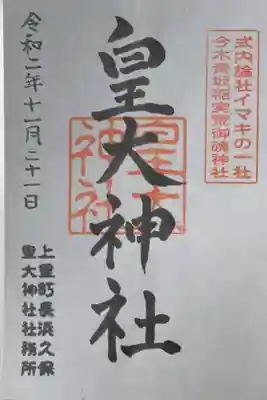 式内論社イマキの一社
今木青坂稲実荒御魂神社
皇大神社
皇大
神社
令和二年十一月二十一日
上里町長浜久保
皇大神社社務所